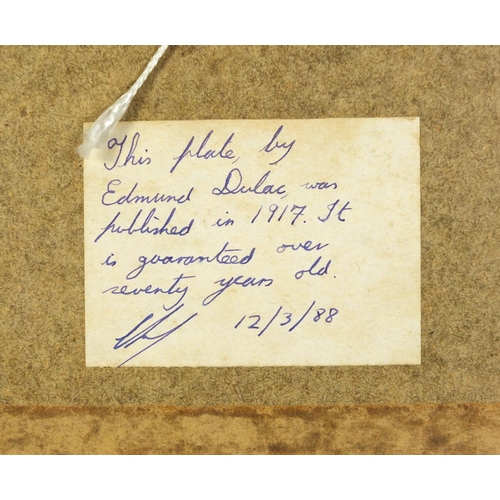 This plate, by
Edmund Dulac, was
published in 1917. It
is guaranteed over
seventy years old.
12/3/88